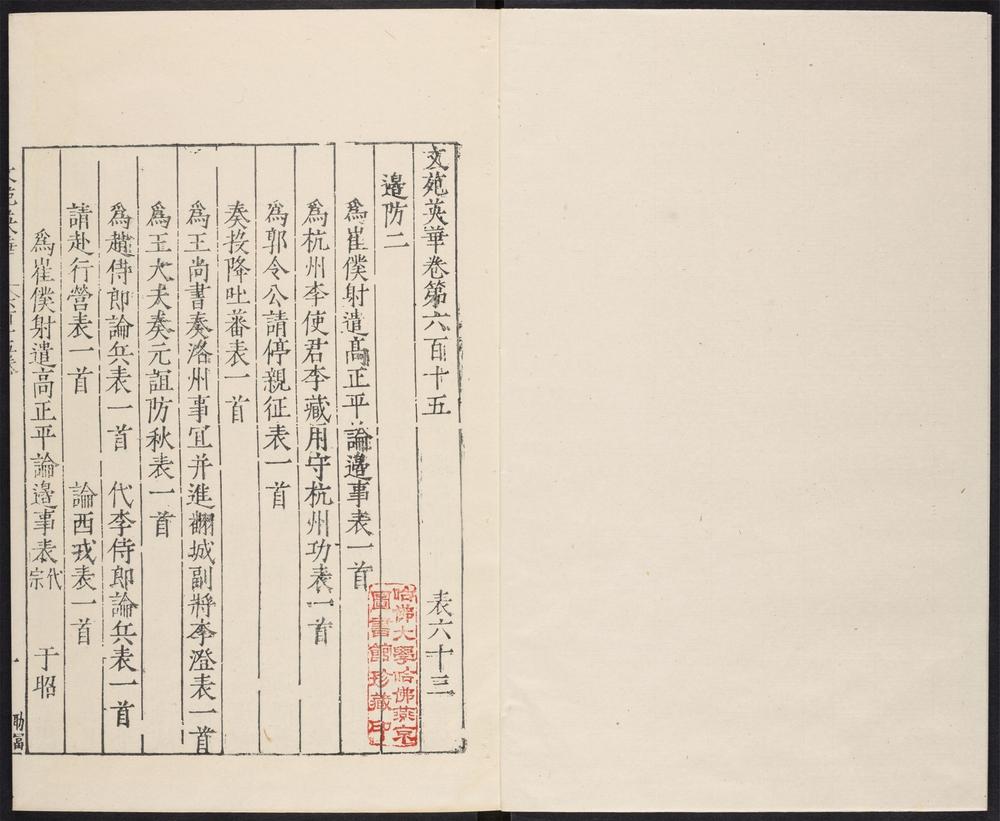 文苑英華卷第六百十五 表六十三
邉防二
爲崔僕射遣髙正平論邉事表一首
爲杭州李使君李藏用守杭州功表一首
爲郭令公請停親征表一首
奏投降吐蕃表一首
爲王尚書奏洛州事宜并進翻城副將李澄表一首
爲王大夫奏元誼防秋表一首
爲趙侍郎論兵表一首 代李侍郎論兵表一首
請赴行營表一首 論西戎表一首
爲崔僕射遣高正平論邉事表代宗 于邵
哈佛大學哈佛燕京
圖書館珍藏印